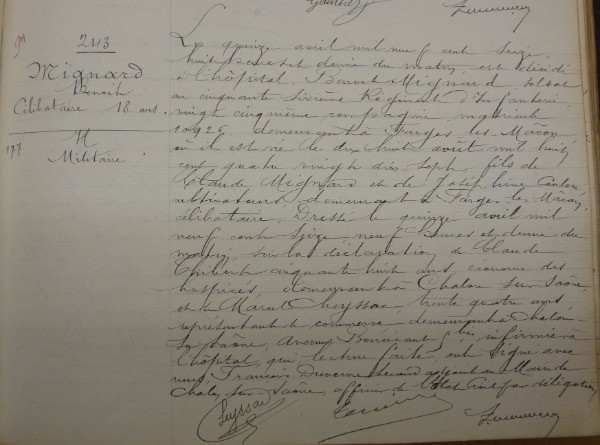 243
Mignard
Benoit
Célibataire 18 ans.
177 H
Militaire
Le quinze avril mil neuf cent seize,
huit heures et demie du matin, est décédé
à l'hôpital, Benoit Mignard, soldat
au cinquante sixième Régiment d'Infanterie,
vingt cinquième compagnie, matricule
10926, demeurant à Farges les Mâcon
où il est né le dix huit août mil huit
cent quatre vingt dix sept, fils de
Claude Mignard et de Joséphine
cultivateurs, demeurant à Farges les Mâcon,
célibataire. Dressé le quinze avril mil
neuf cent seize neuf heures et demie du
matin, sur la déclaration de Claude
cinquante huit ans, économe des
hospices, demeurant à Chalon sur Saône,
et de Marcel Cheyssac, trente quatre ans,
représentant de commerce, demeurant à Chalon
sur Saône, Avenue infirmier à
l'hôpital, qui lecture faite, ont signé avec
nous, François adjoint au Maire de
Chalon sur Saône, officier de l'État Civil par délégation